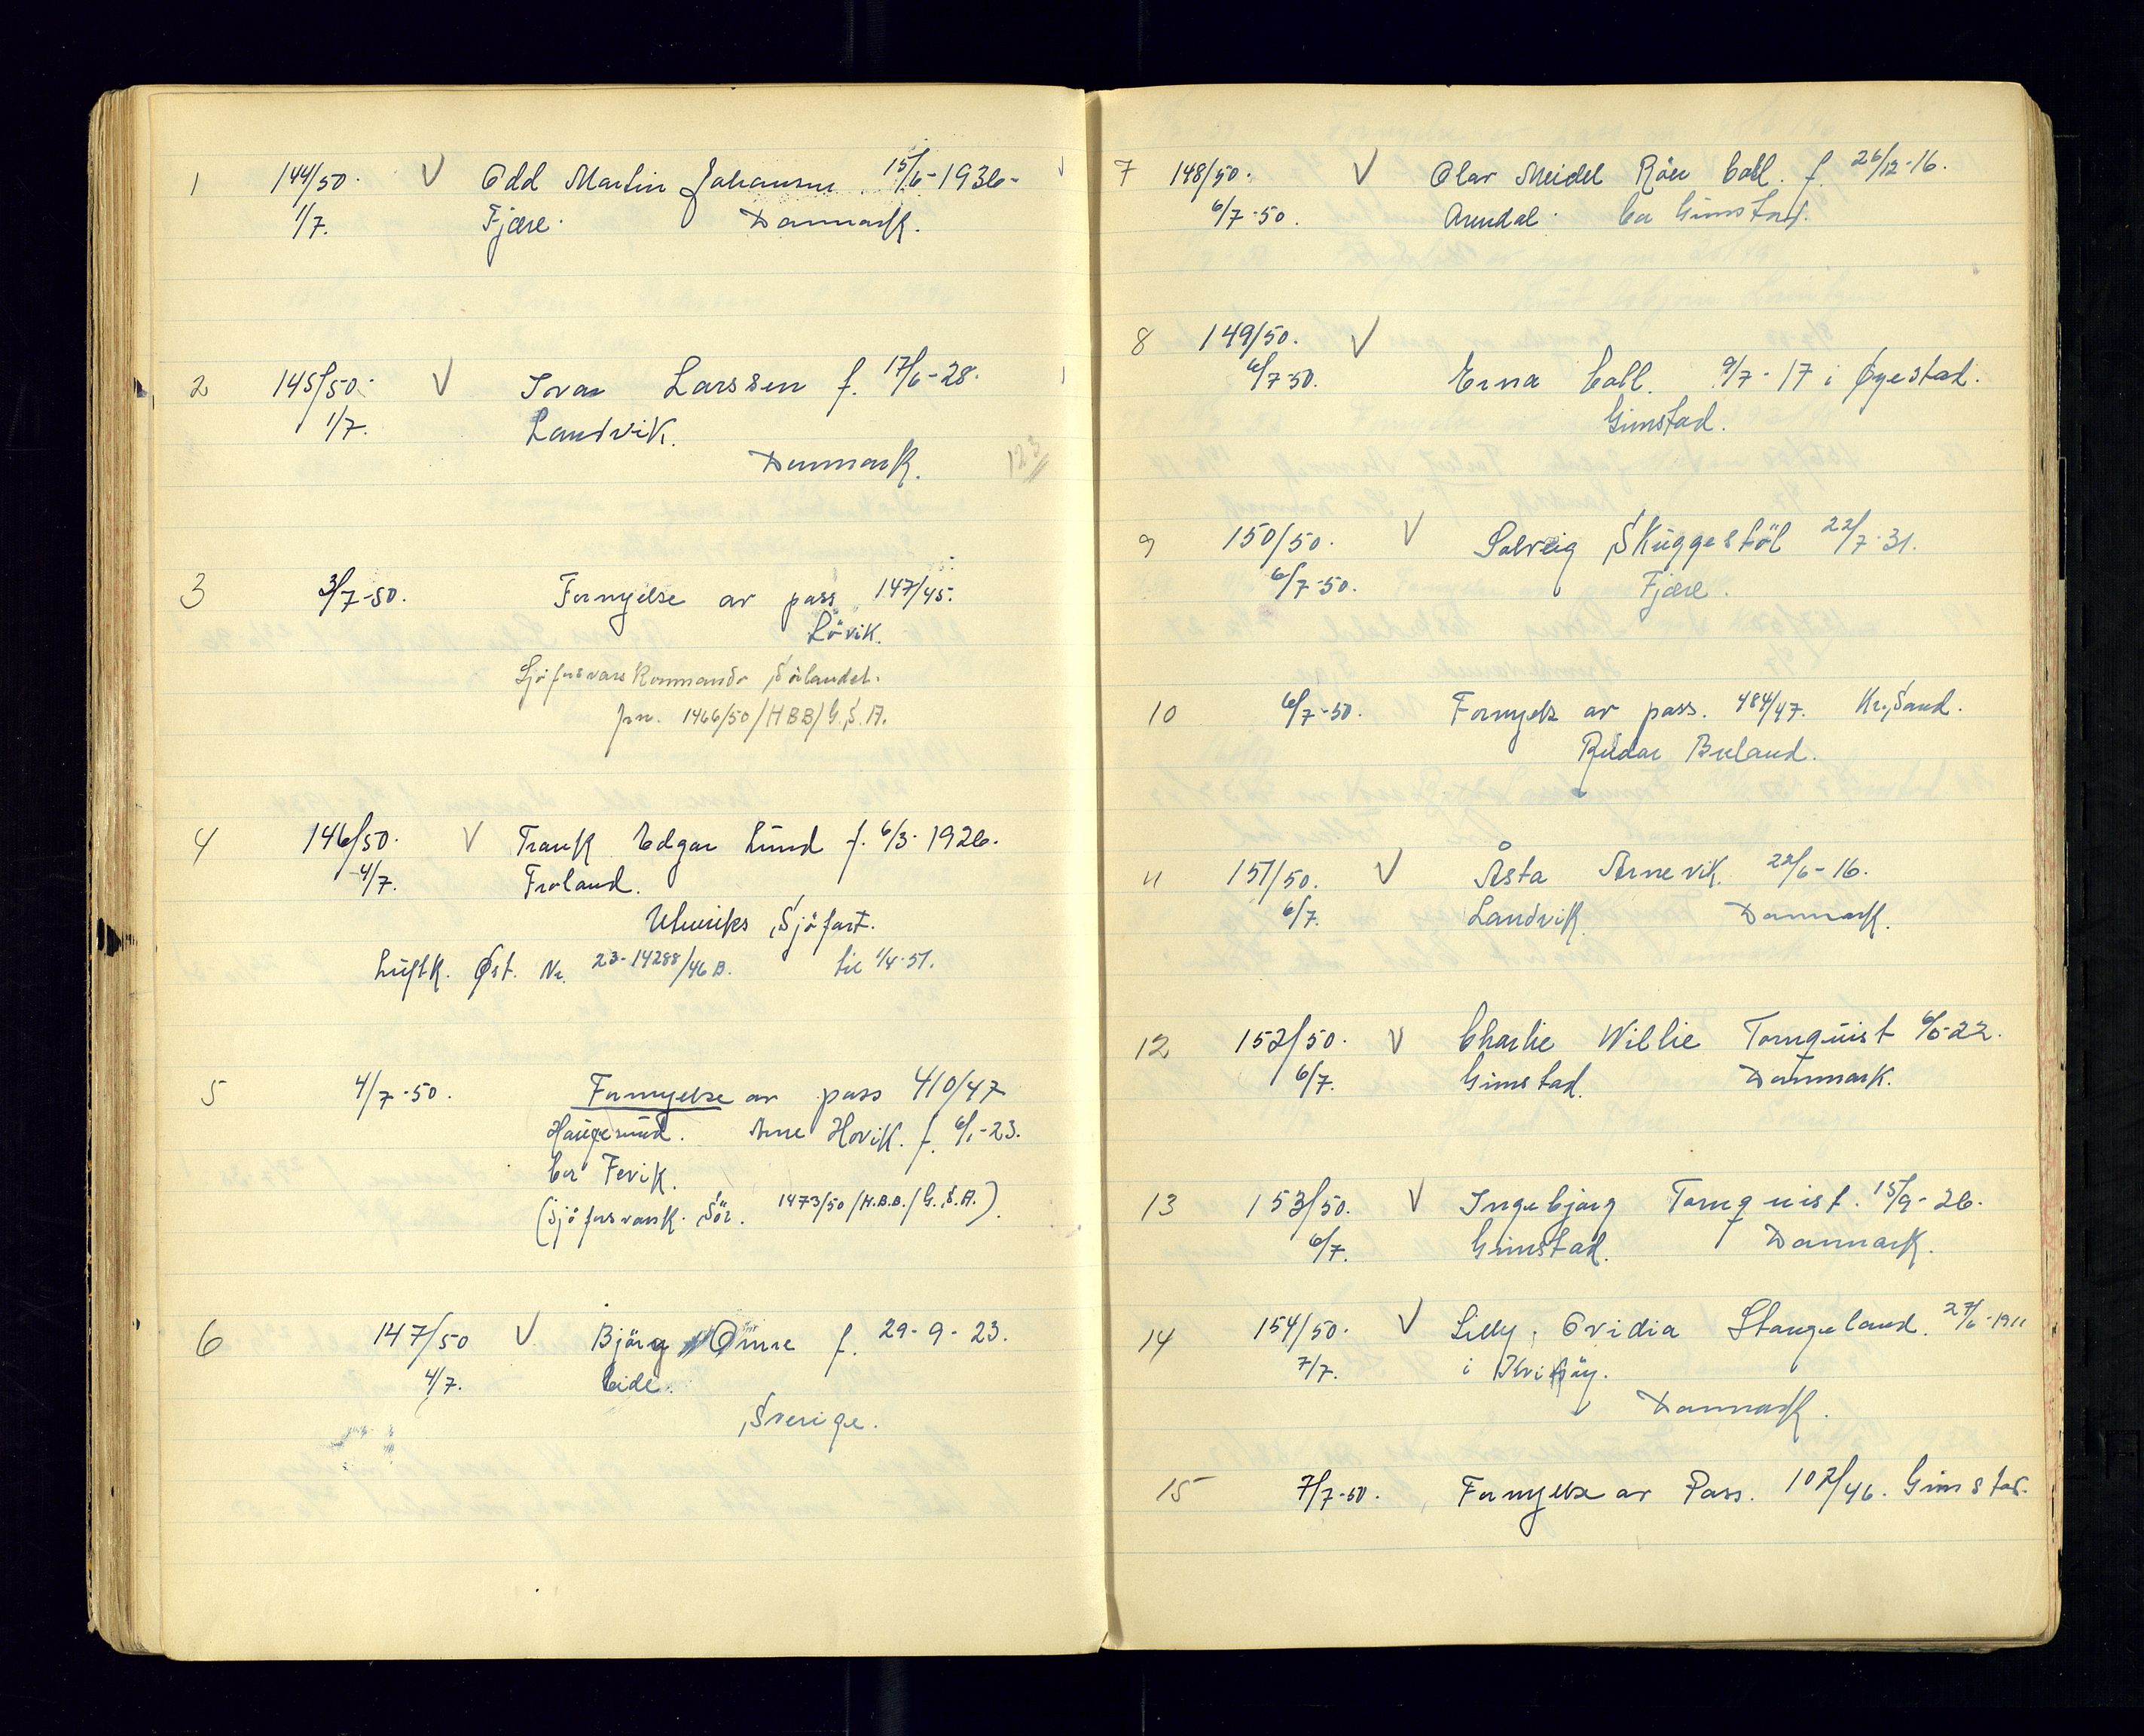 1 144/50. V Odd Martin Johansen. 15/6-1936-
1/7. Fjære. Danmark.
2 145/50. V Ivar Larssen f. 17/6-28.
1/7. Landvik.
Danmark. 123
3 3/7-50. Fornyelse av pass 147/45.
Lövik.
Sjöforsvarskommando Sörlandet.
Jrn. 1466/50/HBB/G.S.A.
4 146/50. V Frank Edgar Lund f. 6/3-1926.
4/7. Froland.
Utenriks Sjöfart.
Luftk. Øst. Nr. 23-14288/46 B. til 1/4-51.
5 4/7-50. Fornyelse av pass 410/47
Haugesund. Arne Hovik. f. 6/1-23.
bor Fevik.
(Sjöforsvarsk. Sör. 1473/50/H.B.B./G.S.A.).
6 147/50 V Björg Omre f. 29-9-23.
4/7. Eide.
Sverige.
7 148/50. V Olav Meidel Röer Coll. f. 26/12-16.
6/7-50. Arendal. bor Grimstad.
8 149/50. V
6/7-50. Erna Coll. 9/7-17 i Øyestad.
Grimstad.
9 150/50. V Solveig Skuggestöl 22/7-31.
6/7-50. Fjære.
10 6/7-50. Fornyels av pass. 484/47. Kr.Sand.
Reidar Buland.
11 151/50. V Åsta Arnevik. 22/6-16.
6/7. Landvik. Danmark.
12 152/50. V Charlie Willie Tornquist 6/5-22.
6/7. Grimstad. Danmark.
13 153/50. V Ingebjørg Tornquist. 15/9-26.
6/7. Grimstad. Danmark.
14 154/50. V Lilly Ovidia Stangeland. 27/6-1911
7/7. i
Danmark.
15 7/7-50. Fornyelse av Pass. 102/46. Grimstad.